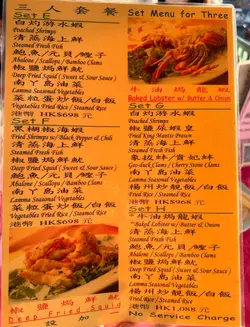 三人套餐
Set E
白灼游水蝦
Poached Shrimps
清蒸海上鮮
Steamed Fresh Fish
鮑魚/元貝/蟶子
Abalone / Scallops / Bamboo Clams
椒鹽焗鮮魷
Deep Fried Squid ( Sweet & Sour Sauce )
南丫島油菜
Lamma Seasonal Vegetables
菜粒蛋炒飯/白飯
Vegetables Fried Rice / Steamed Rice
港幣 HK$698 元
Set F
黑椒椒海蝦
Fried Shrimps w/ Black Pepper & Chili
清蒸海上鮮
Steamed Fresh Fish
鮑魚/元貝/蟶子
Abalone / Scallops / Bamboo Clams
椒鹽焗鮮魷
Deep Fried Squid ( Sweet & Sour Sauce )
南丫島油菜
Lamma Seasonal Vegetables
菜粒蛋炒飯/白飯
Vegetables Fried Rice / Steamed Rice
港幣 HK$768 元
椒鹽焗鮮魷
Deep Fried Squid
設加
Set Menu for Three
牛油焗龍蝦
Baked Lobster w/ Butter & Onion
Set G
白灼游水蝦
Poached Shrimps
椒鹽瀨尿蝦皇
Fried King Mantis Prawn
清蒸海上鮮
Steamed Fresh Fish
象拔蚌/貴妃蚌
Geo-duck Clams / Cherry Stone Clams
南丫島油菜
Lamma Seasonal Vegetables
揚州炒飯/白飯
Fried Rice / Steamed Rice
港幣 HK$968 元
Set H
*牛油焗龍蝦
*Baked Lobster w/ Butter & Onion
白灼游水蝦
Poached Shrimps
清蒸海上鮮
Steamed Fresh Fish
鮑魚/元貝/蟶子
Abalone / Scallops / Bamboo Clams
椒鹽焗鮮魷
Deep Fried Squid ( Sweet & Sour Sauce )
南丫島油菜
Lamma Seasonal Vegetables
揚州炒飯/白飯
Fried Rice / Steamed Rice
港幣 HK$ 1,088 元
No Service Charge